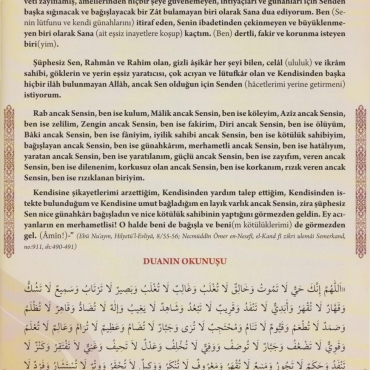 veti zayıflamış, amellerinden hiçbir şeye güvenemeyen, ihtiyaçları ve günahları için Senden
başka sığınacak ve bağışlayacak bir Zât bulamayan biri olarak Sana dua ediyorum. Ben (Se-
nin lütfunu ve kendi günahlarını) itiraf eden, Senin ibadetinden çekinmeyen ve büyüklenme-
yen biri olarak Sana (ait essiz inayetlere koşup) kaçtım. (Ben) dertli, fakir ve korunma isteyen
biri(yim).
Şüphesiz Sen, Rahmân ve Rahîm olan, gizli âşikâr her şeyi bilen, celâl (ululuk) ve ikrâm
sahibi, göklerin ve yerin eşsiz yaratıcısı, çok acıyan ve lütufkâr olan ve Kendisinden başka
hiçbir ilâh bulunmayan Allâh, ancak Sen olduğun için Senden (hâcetlerimi yerine getirmeni)
istiyorum.
Rab ancak Sensin, ben ise kulum, Mâlik ancak Sensin, ben ise köleyim, Azîz ancak Sensin,
ben ise zelîlim, Zengin ancak Sensin, ben ise fakirim, Diri ancak Sensin, ben ise ölüyüm,
Bâkî ancak Sensin, ben ise fâniyim, iyilik sahibi ancak Sensin, ben ise kötülük sahibiyim,
bağışlayan ancak Sensin, ben ise günahkârım, merhametli ancak Sensin, ben ise hatâlıyım,
yaratan ancak Sensin, ben ise yaratılanım, güçlü ancak Sensin, ben ise zayıfım, veren ancak
Sensin, ben ise dilenenim, korkusuz olan ancak Sensin, ben ise korkanım, rızık veren ancak
Sensin, ben ise rızıklanan biriyim.
Kendisine şikayetlerimi arzettiğim, Kendisinden yardım talep ettiğim, Kendisinden is-
tekte bulunduğum ve Kendisine umut bağladığım en layık varlık ancak Sensin, zira şüphesiz
Sen nice günahkârı bağışladın ve nice kötülük sahibinin yaptığını görmezden geldin. Ey acı-
yanların en merhametlisi! O halde beni de bağışla ve beni(m kötülüklerimi) de görmezden
gel. (Âmîn!)-" (Ebû Nu'aym, Hilyetü'l-Evliyâ, 8/55-56; Necmüddîn Ömer en-Nesefî, el-Kand fî zikri ulemâi Semerkand,
no:911, sh:490-491)
DUANIN OKUNUŞU
«اَللّٰهُمَّ اِنَّكَ حَيٌّ لَا تَمُوتُ وَخَالِقٌ لَا تُغْلَبُ وَغَالِبٌ لَا تُغْلَبُ وَبَصِيرٌ لَا تَرْتَابُ وَسَمِيعٌ لَا تَشُكُّ
وَقَهَّارٌ لَا تُقْهَرُ وَاَبَدِيٌّ لَا تَنْفَدُ وَقَرِيبٌ لَا تَبْعُدُ وَشَاهِدٌ لَا يَغِيبُ وَاِلٰهٌ لَا تُضَادُّ وَقَاهِرٌ لَا تَظْلِمُ
وَصَمَدٌ لَا تُطْعَمُ وَقَيُّومٌ لَا تَنَامُ وَمُحْتَجِبٌ لَا تُرٰى وَجَبَّارٌ لَا تُضَامُ وَعَظِيمٌ لَا تُرَامُ وَعَالِمٌ لَا تُعَلَّمُ
وَقَوِيٌّ لَا تَضْعُفُ وَجَبَّارٌ لَا تُوصَفُ وَوَفِيٌّ لَا تُخْلِفُ وَعَدْلٌ لَا تَحِيفُ وَغَنِيٌّ لَا تَفْتَقِرُ وَكَنْزٌ لَا
تَنْفَدُ وَحَكَمٌ لَا تَجُورُ وَمَنِيعٌ لَا تُقْهَرُ وَمَعْرُوفٌ لَا تُنْكَرُ وَوَكِيلٌ لَا تُحْقَرُ وَوِتْرٌ لَا تُسْتَشَارُ وَفَرْدٌ لَا